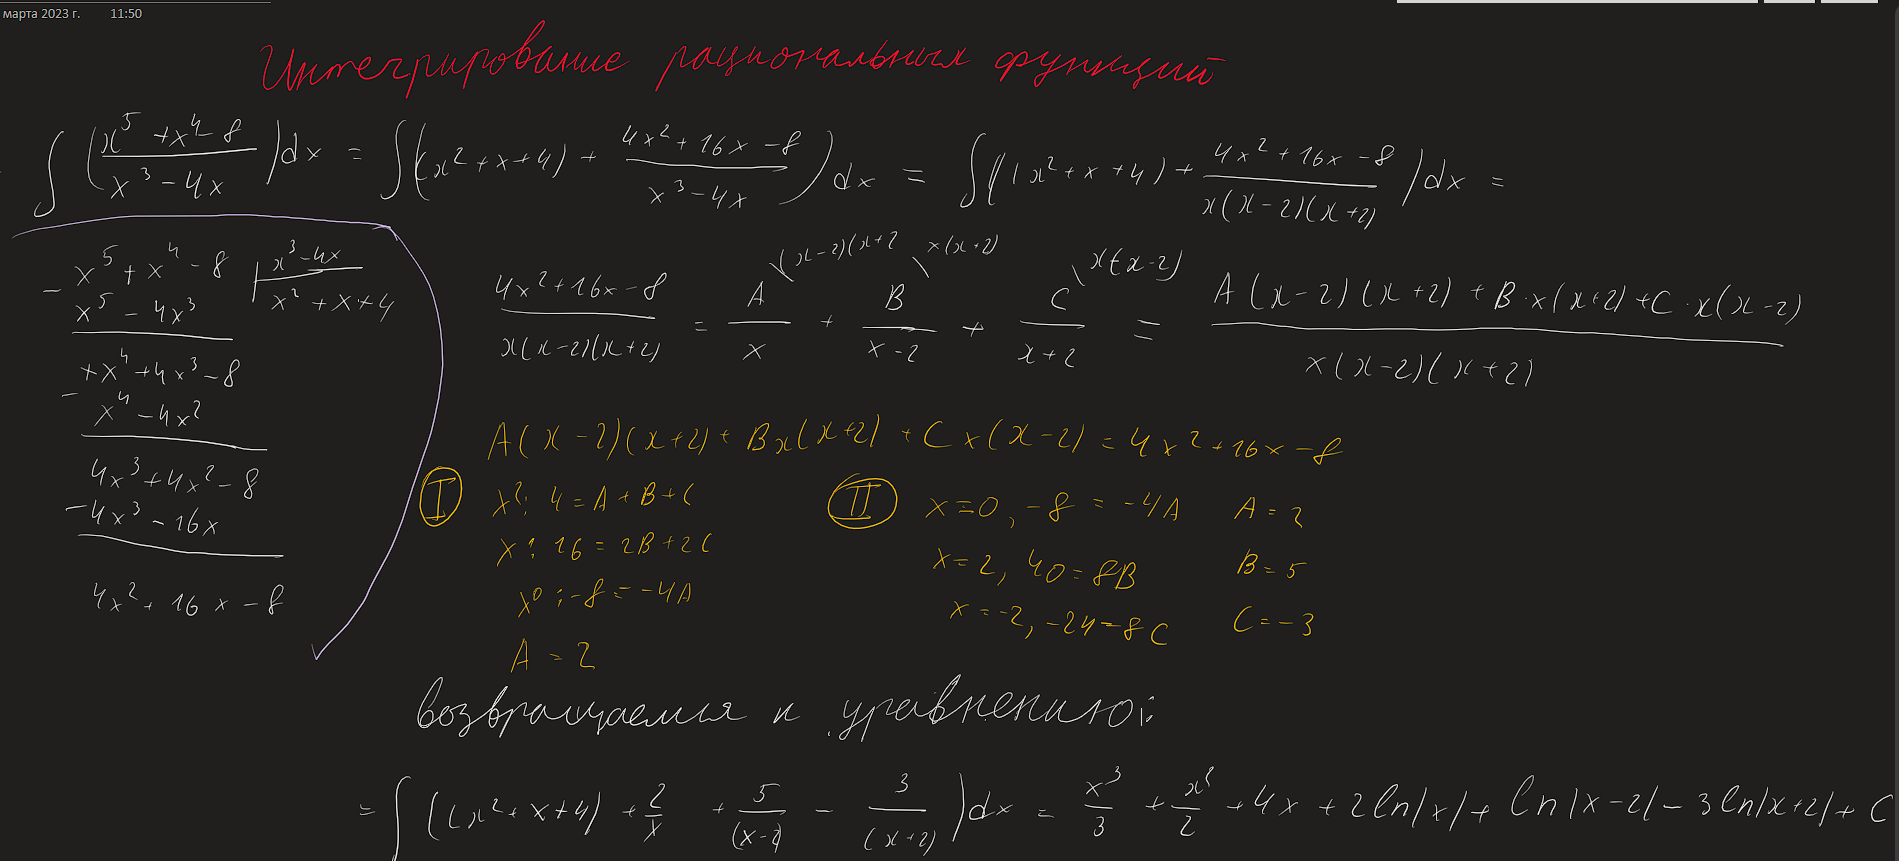 марта 2023 г. 11:50
Интегрирование рациональных функций
∫ ((x^5 + x^4 - 8)/(x^3 - 4x)) dx = ∫ ((x^2 + x + 4) + (4x^2 + 16x - 8)/(x^3 - 4x)) dx = ∫ ((x^2 + x + 4) + (4x^2 + 16x - 8)/(x(x-2)(x+2))) dx =
- x^5 + x^4 - 8 | x^3 - 4x
x^5 - 4x^3 | x^2 + x + 4
+x^4 + 4x^3 - 8
- x^4 - 4x^2
4x^3 + 4x^2 - 8
- 4x^3 - 16x
4x^2 + 16x - 8
(x-2)(x+2 x(x+2) x(x-2)
(4x^2 + 16x - 8)/(x(x-2)(x+2)) = A/x + B/(x-2) + C/(x+2) = (A(x-2)(x+2) + B·x(x+2) + C·x(x-2))/(x(x-2)(x+2))
A(x-2)(x+2) + Bx(x+2) + Cx(x-2) = 4x^2 + 16x - 8
I x^2: 4 = A + B + C
x: 16 = 2B + 2C
x^0: -8 = -4A
A = 2
II x=0, -8 = -4A A = 2
x=2, 40=8B B = 5
x=-2, -24=8C C = -3
возвращаемся к уравнению:
= ∫ ((x^2 + x + 4) + 2/x + 5/(x-2) - 3/(x+2)) dx = x^3/3 + x^2/2 + 4x + 2ln|x| + ln|x-2| - 3ln|x+2| + C